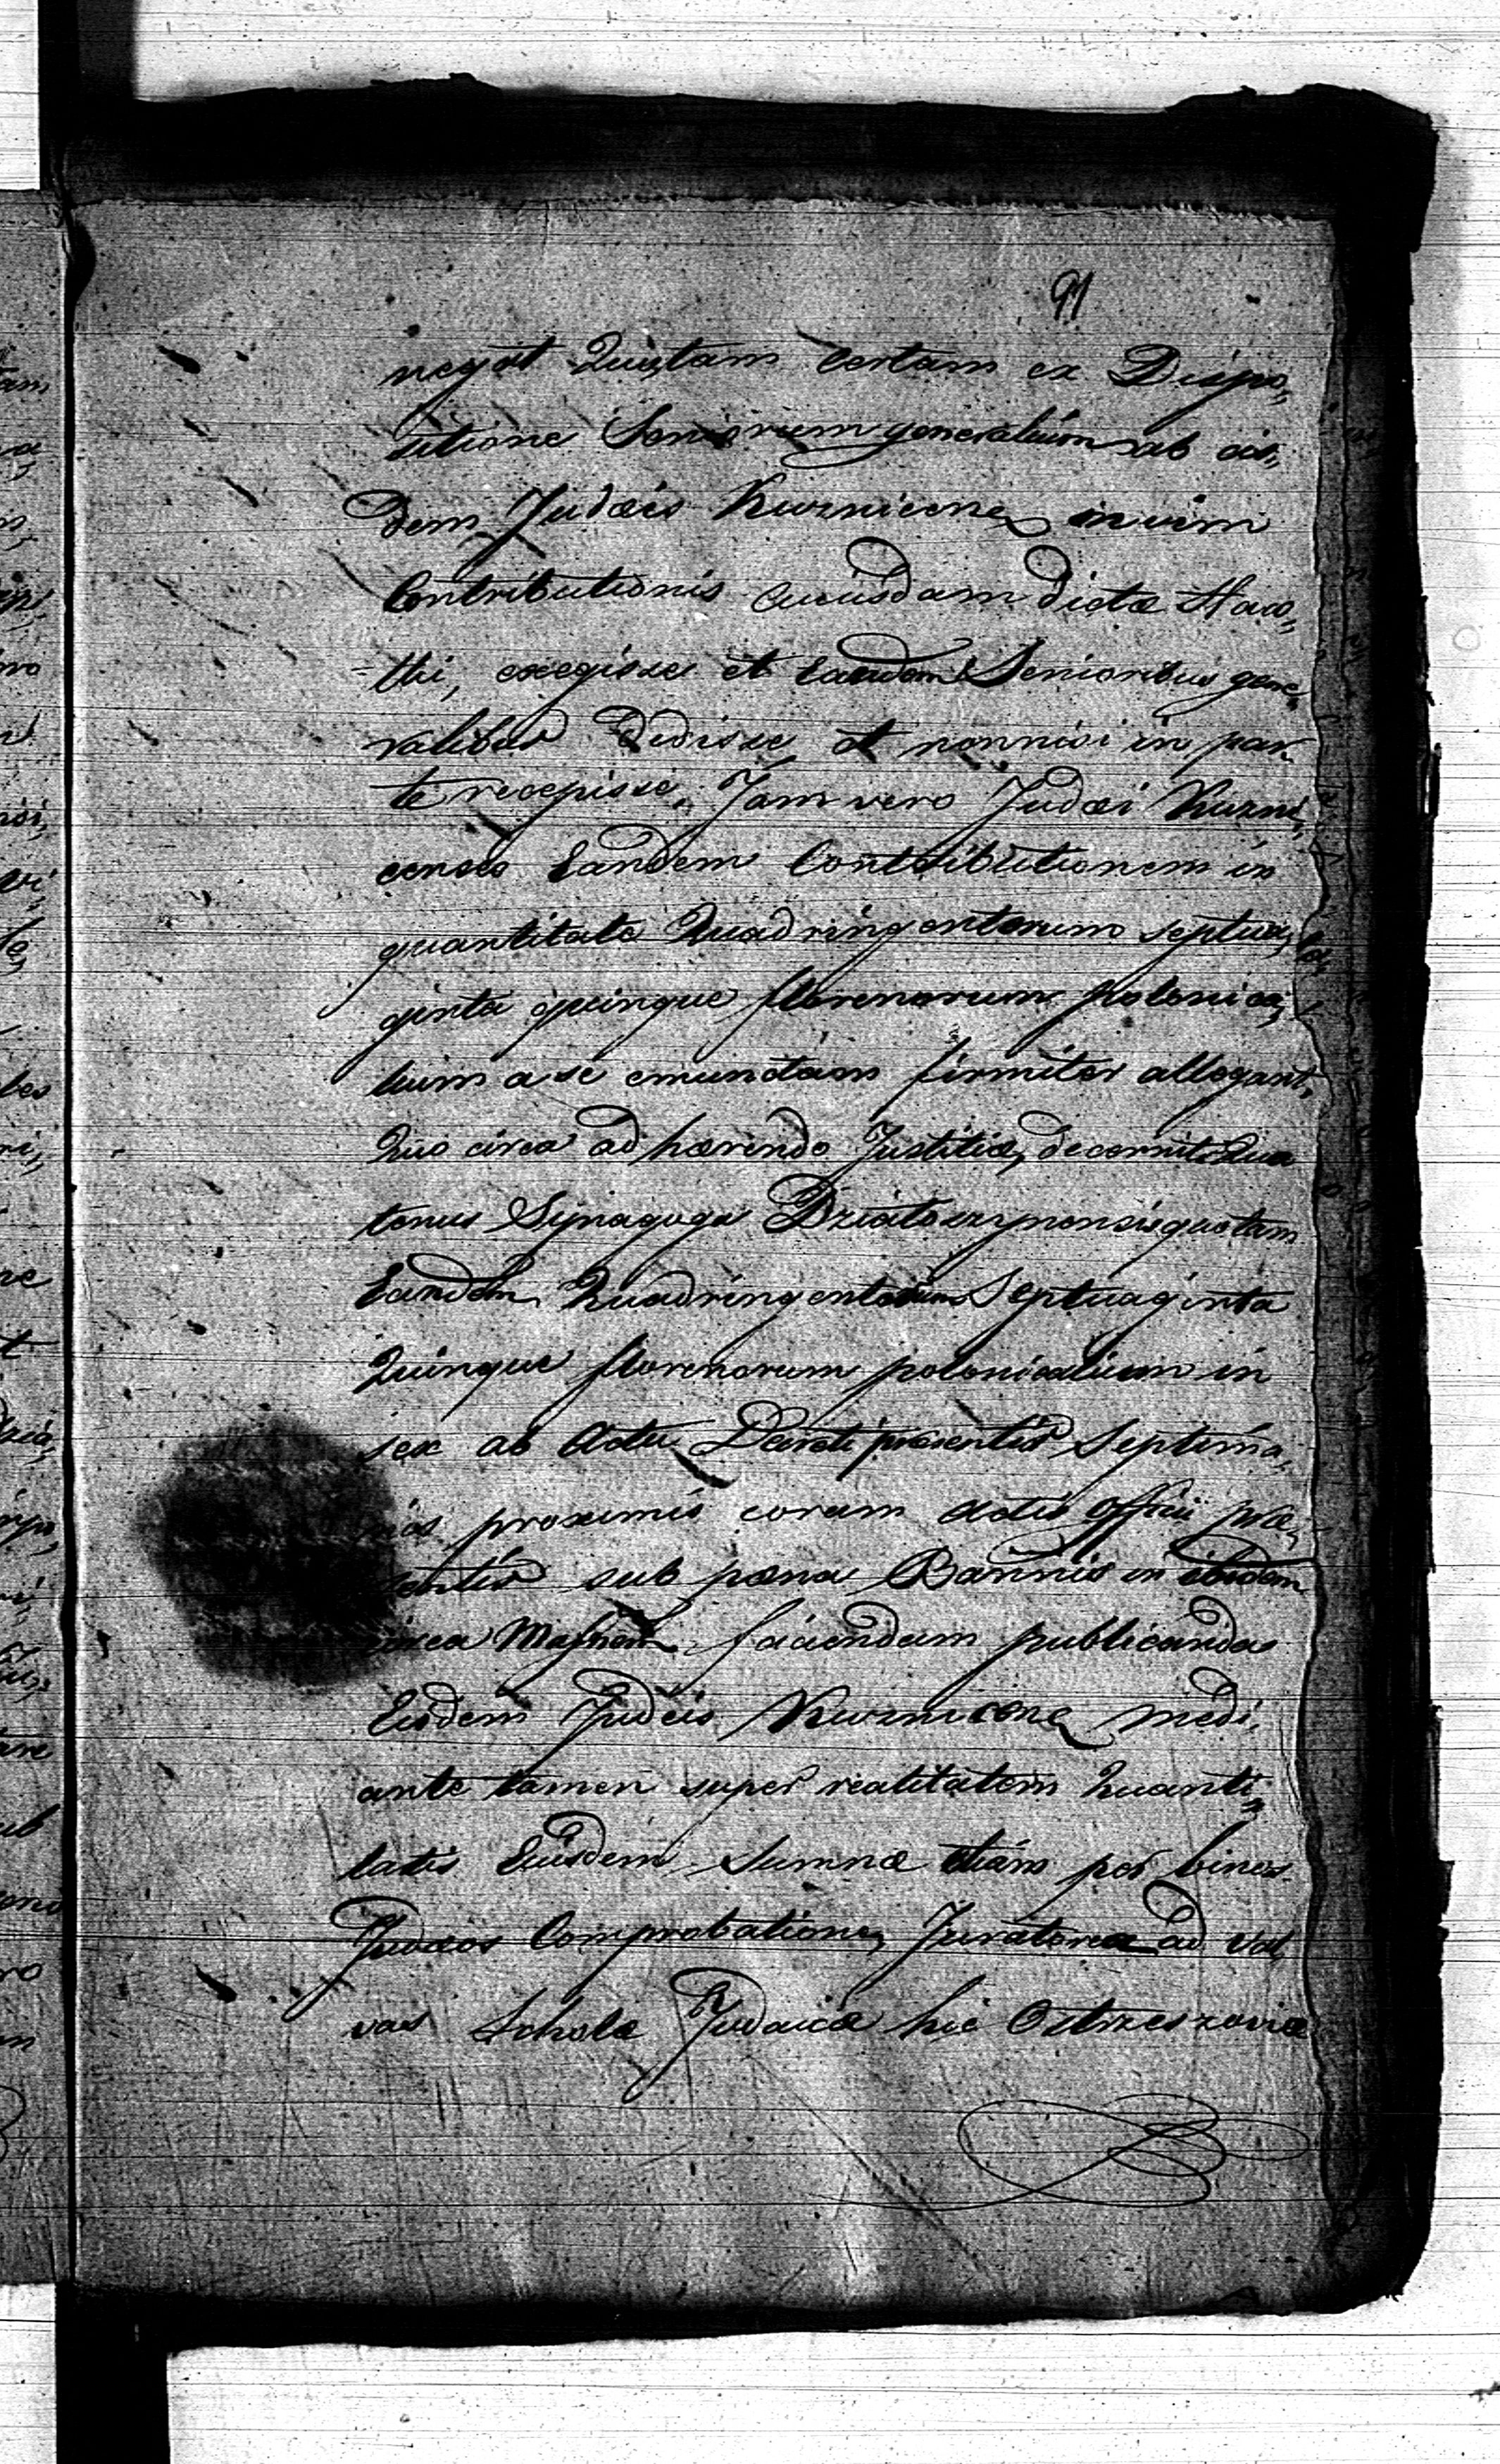 91
negat Quotam certam ex Dispo„
sitione Seniorum generalium ab eis„
dem Judæis Kuznicen in vim
Contributionis cuiusdam dictæ Haas„
thi, exegisse et Eandem Senioribus gene„
ralibus Dedisse et nonnisi in par„
te recepisse, Jam vero Judæi Kuzni„
censes Eandem Contributionem in
quantitate Quadringentorum septua„
ginta quinque florenorum polonica„
lium a se emunctam firmiter allegant,
Quo circa adhærendo Justitiæ, decernit Qua
tenus Synagoga Działoszynensis quotam
Eandem Quadringentorum Septuaginta
Quinque florenorum polonicalium in
sex ab Actu Decreti præsentis Septima„
nis proximis coram Actis Officii præ„
sentis sub pœna Bannis in ibidem
circa faciendam publicanda
Eisdem Judeis Kuznicen medi„
ante tamen super realitatem Quanti„
tatis Eiusdem Summæ etiam per binos
Judæos Comprobatione Juratorea ad val„
vas Scholæ Judaicæ hic Ostrzeszoviæ